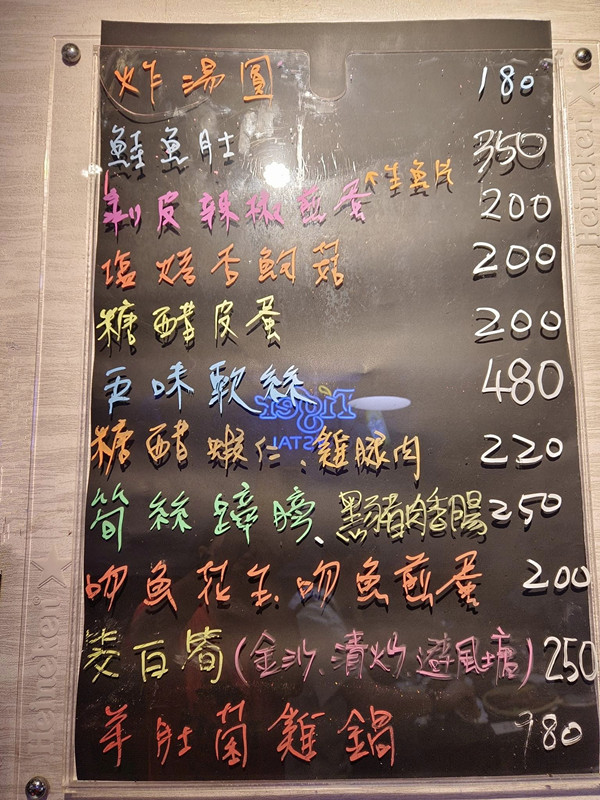 炸湯圓 180
鮭魚肚 350
↑生魚片
剝皮辣椒煎蛋 200
塩焗杏鮑菇 200
糖醋皮蛋 200
五味軟絲 480
糖醋蝦仁、雞腿肉 220
筍絲蹄膀、黑豬肉香腸 250
吻魚花生吻魚煎蛋 200
茭白筍(金沙、清炒、避風塘) 250
羊肚菌雞鍋 980
Tiger
STAI
Heineken
Heineken